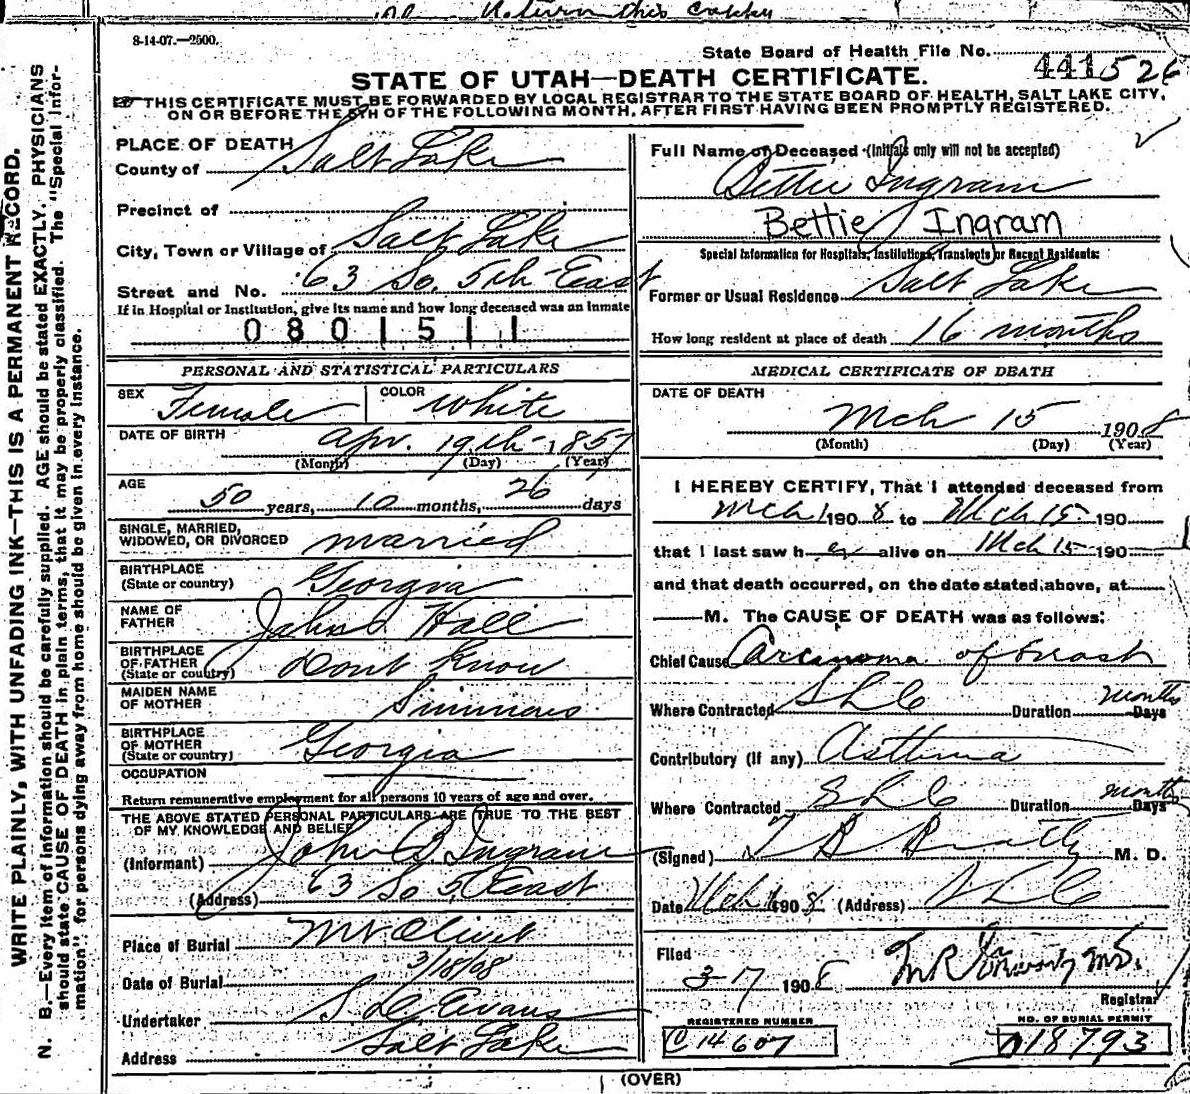 Return this copy
8-14-07.—2500.
State Board of Health File No. 441526
STATE OF UTAH—DEATH CERTIFICATE.
THIS CERTIFICATE MUST BE FORWARDED BY LOCAL REGISTRAR TO THE STATE BOARD OF HEALTH, SALT LAKE CITY,
ON OR BEFORE THE 5TH OF THE FOLLOWING MONTH, AFTER FIRST HAVING BEEN PROMPTLY REGISTERED.
WRITE PLAINLY, WITH UNFADING INK—THIS IS A PERMANENT RECORD.
N. B.—Every item of information should be carefully supplied. AGE should be stated EXACTLY. PHYSICIANS
should state CAUSE OF DEATH in plain terms, that it may be properly classified. The "Special Infor-
mation" for persons dying away from home should be given in every instance.
PLACE OF DEATH
County of Salt Lake
Precinct of
City, Town or Village of Salt Lake
Street and No. 63 So. 5th East
If in Hospital or Institution, give its name and how long deceased was an inmate
0801511
PERSONAL AND STATISTICAL PARTICULARS
SEX Female COLOR White
DATE OF BIRTH Apr. 19th 1857
(Month) (Day) (Year)
AGE
50 years, 10 months, 26 days
SINGLE, MARRIED,
WIDOWED, OR DIVORCED married
BIRTHPLACE
(State or country) Georgia
NAME OF
FATHER Hall
BIRTHPLACE
OF FATHER
(State or country) Dont Know
MAIDEN NAME
OF MOTHER Simmons
BIRTHPLACE
OF MOTHER
(State or country) Georgia
OCCUPATION
Return remunerative employment for all persons 10 years of age and over.
THE ABOVE STATED PERSONAL PARTICULARS ARE TRUE TO THE BEST
OF MY KNOWLEDGE AND BELIEF
(Informant) John B. Ingram
(Address) 63 So 5 East
Place of Burial Mt Olivet
Date of Burial 3/18/08
Undertaker S D Evans
Address Salt Lake
Full Name of Deceased (Initials only will not be accepted)
Bettie Ingram
Bettie Ingram
Special Information for Hospitals, Institutions, Transients or Recent Residents:
Former or Usual Residence Salt Lake
How long resident at place of death 16 months
MEDICAL CERTIFICATE OF DEATH
DATE OF DEATH
Mch 15 1908
(Month) (Day) (Year)
I HEREBY CERTIFY, That I attended deceased from
Mch 1 1908 to Mch 15 190
that I last saw her alive on Mch 15 190
and that death occurred, on the date stated above, at
M. The CAUSE OF DEATH was as follows:
Chief Cause Carcinoma of breast
Where Contracted SLC Duration months Days
Contributory (If any) Asthma
Where Contracted SLC Duration months Days
(Signed) T B Beatty M. D.
Date Mch 1908 (Address) SLC
Filed
3-17 1908 M.D.
Registrar
REGISTERED NUMBER
C 14607
NO. OF BURIAL PERMIT
D18793
(OVER)